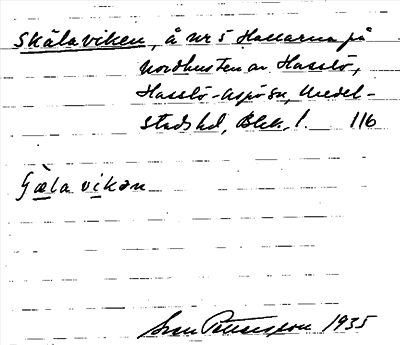 Skälaviken, å nr 5 Hallarna på
nordkusten av Hasslö,
Hasslö-Aspö sn, Medel-
stads hd, Blek. l. 116
Sven Pettersson 1935